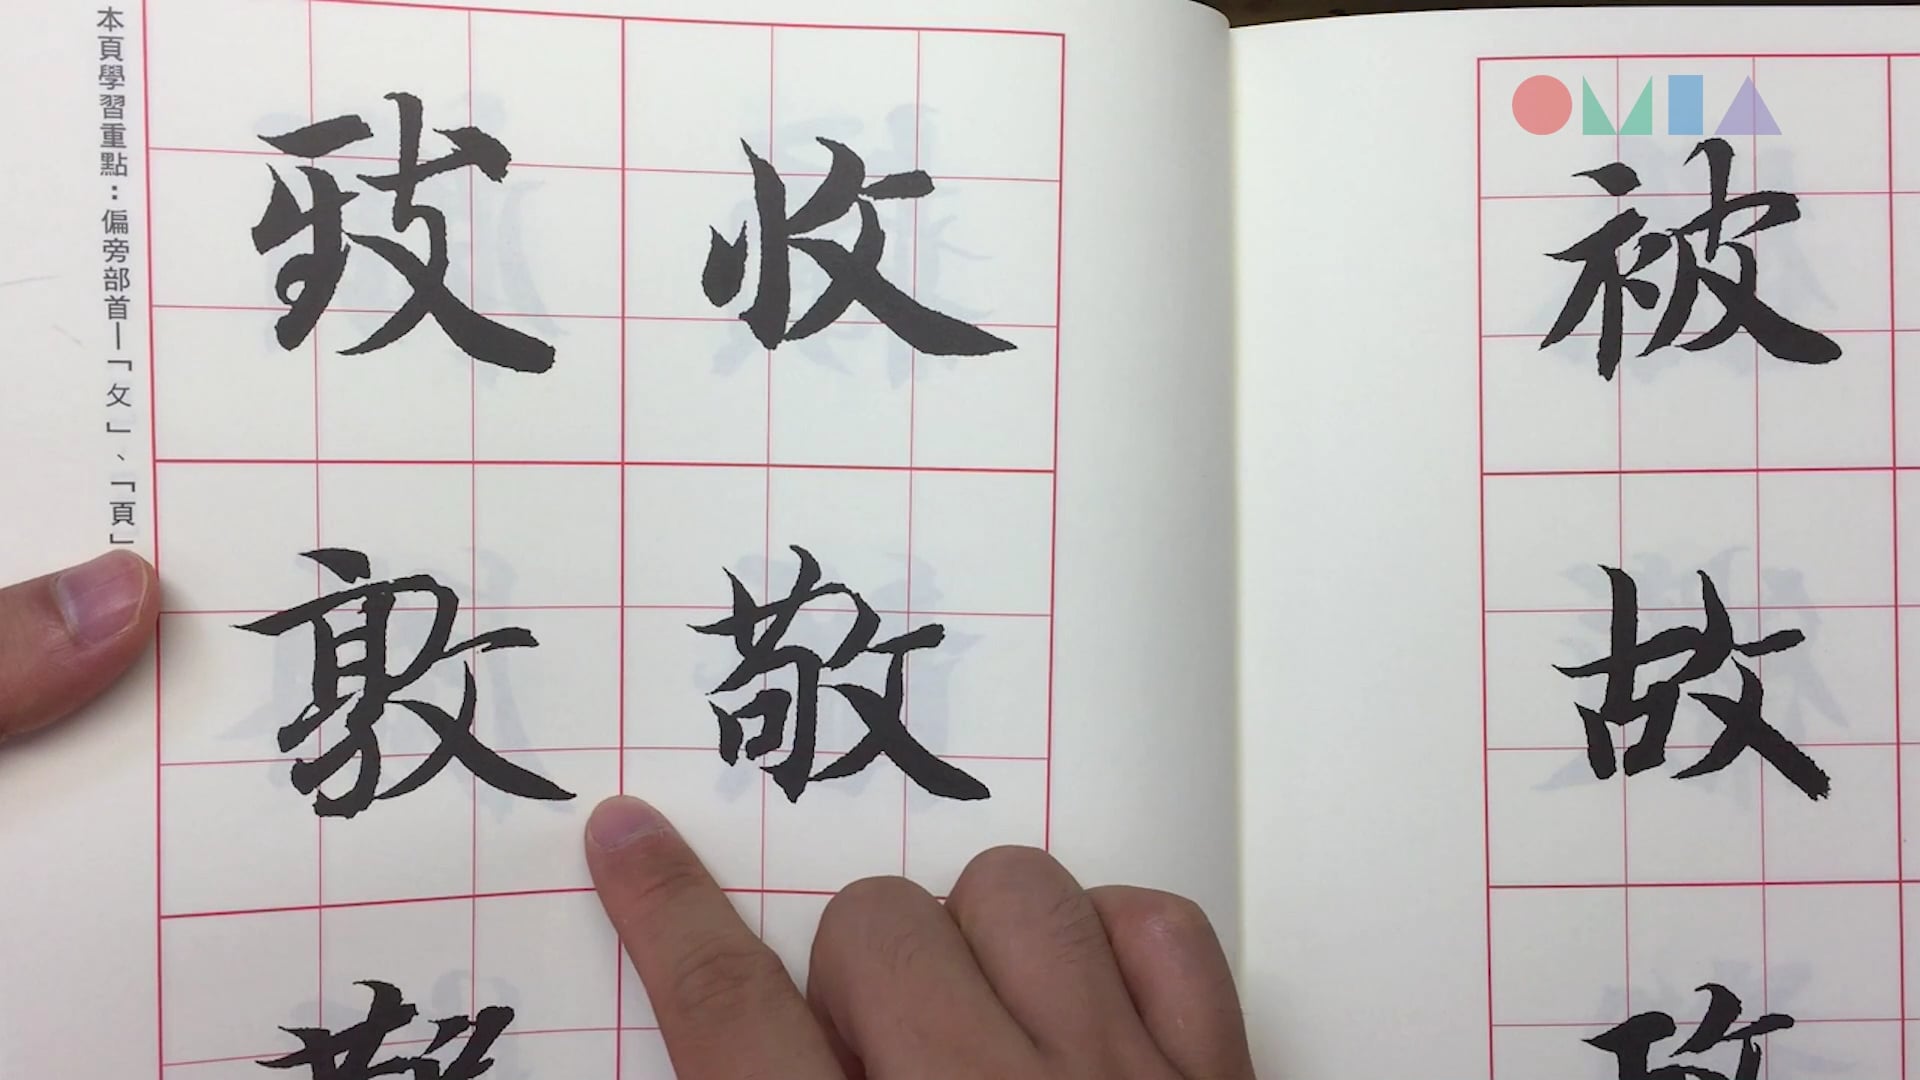 OMIA
被
故
收
敬
致
敦
本頁學習重點：偏旁部首—「攵」、「頁」